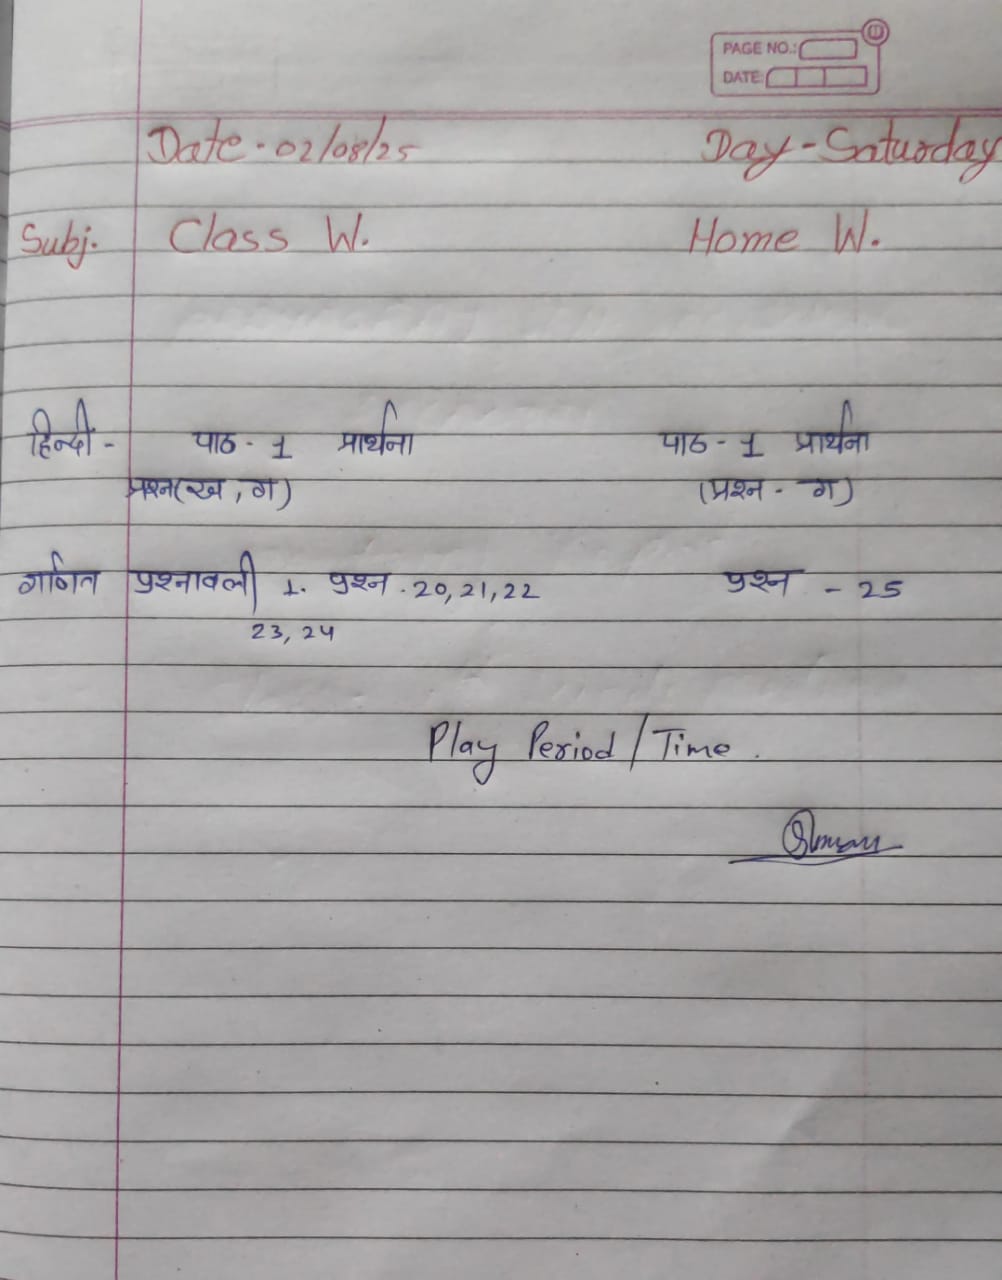 PAGE NO.:
DATE:
Date - 02/08/25 Day - Saturday
Subj. Class W. Home W.
हिन्दी - पाठ - 1 प्रार्थना पाठ - 1 प्रार्थना
प्रश्न(ख, ग) (प्रश्न - ग)
गणित प्रश्नावली 1. प्रश्न . 20, 21, 22 प्रश्न - 25
23, 24
Play Period / Time .